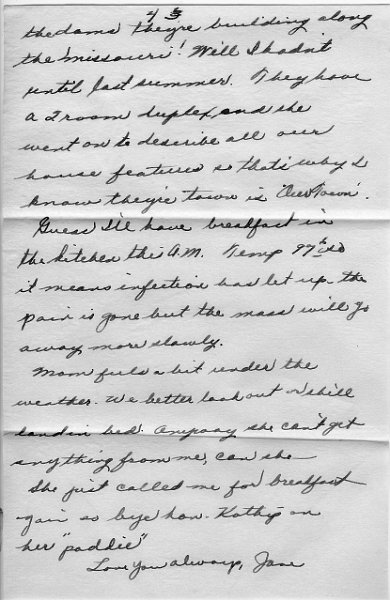 the dams they're building along
the Missouri! Well I hadn't
until last summer. They have
a 2 room duplex and she
went on to describe all our
house features so that's why I
know they're town is "Our Town".
Guess I'll have breakfast in
the kitchen this A.M. Temp 97 so
it means infection has let up. the
pain is gone but the mass will go
away more slowly.
Mom feels a bit under the
weather. We better look out or she'll
land in bed. Anyway she can't get
anything from me, can she
She just called me for breakfast
gain so bye hon. Kathy's on
her "paddie"
Love you always, Jane